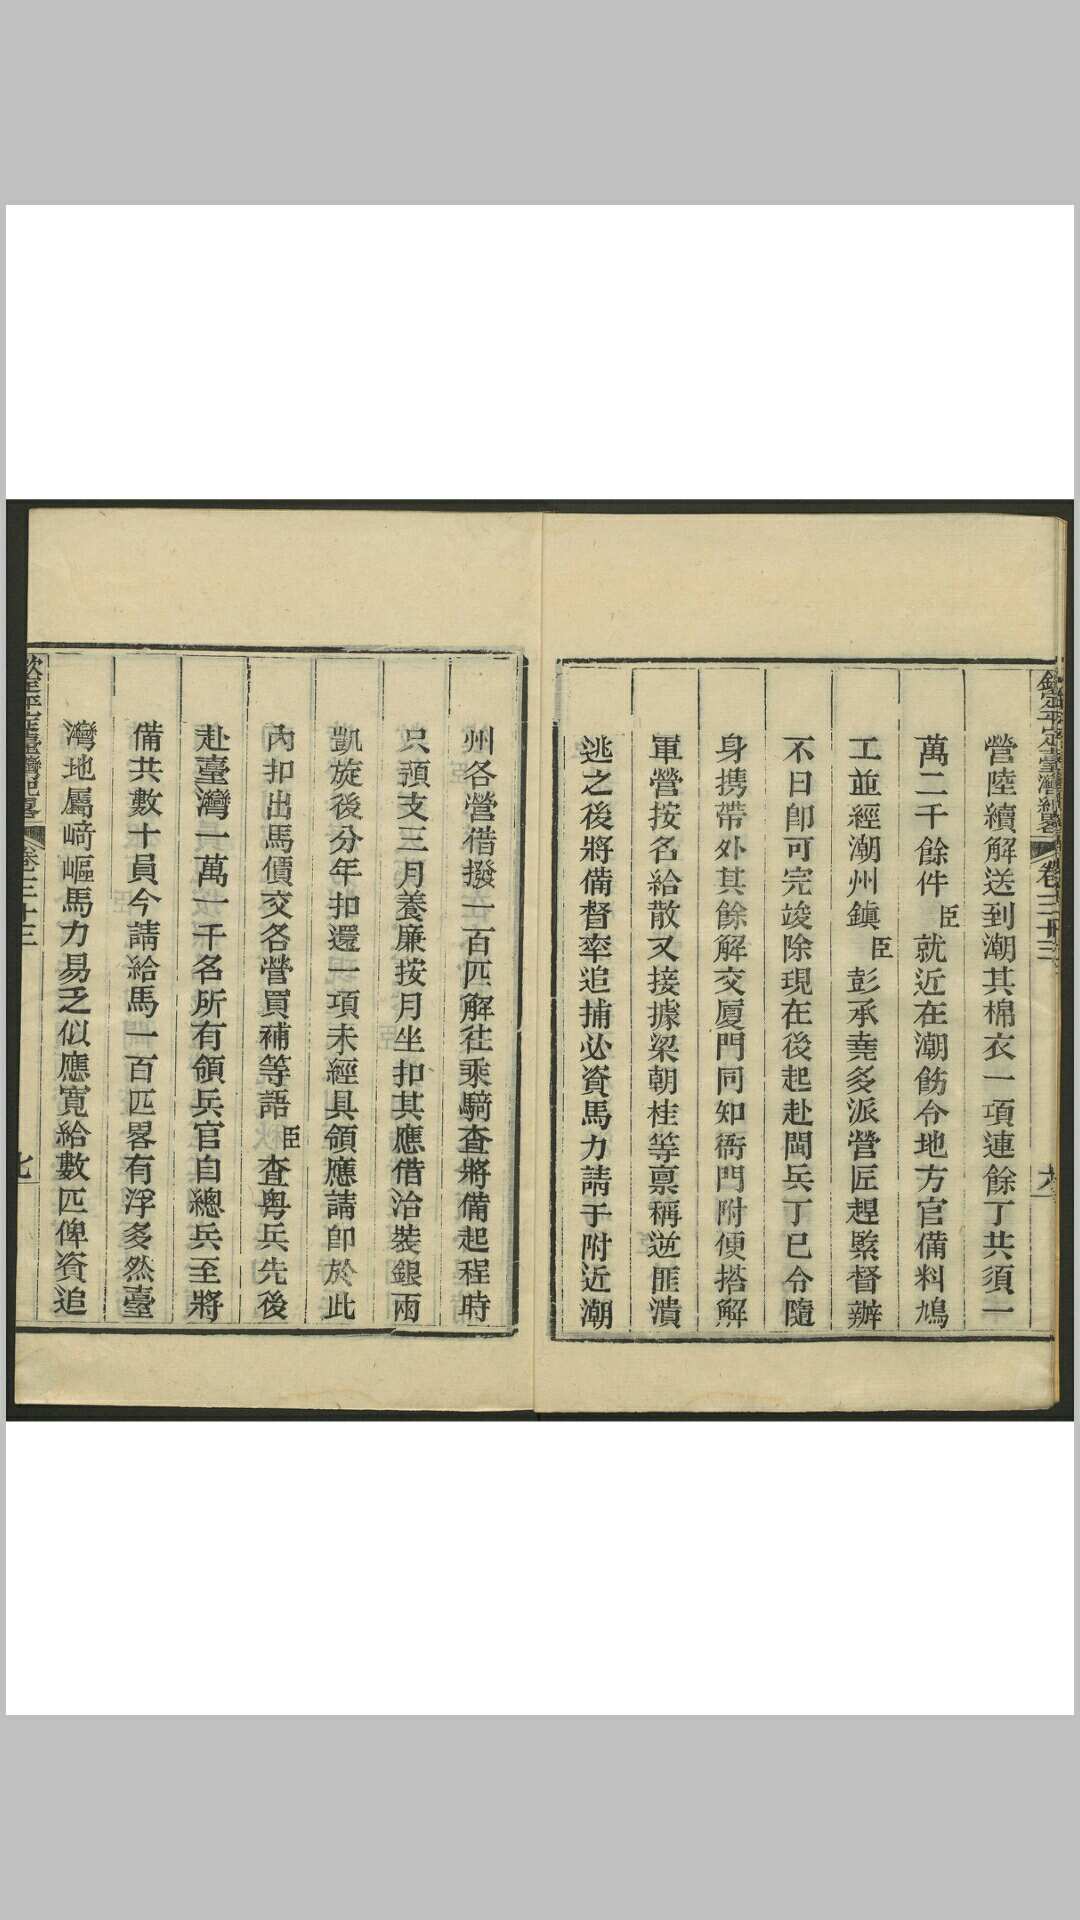 欽定平定臺灣紀畧 卷三十三 六
營陸續解送到潮其棉衣一項連餘丁共須一
萬二千餘件臣就近在潮飭令地方官備料鳩
工並經潮州鎮臣彭承堯多派營匠趕緊督辦
不日卽可完竣除現在後起赴閩兵丁已令隨
身携帶外其餘解交厦門同知衙門附便搭解
軍營按名給散又接據梁朝桂等禀稱逆匪潰
逃之後將備督率追捕必資馬力請于附近潮
州各營借撥一百匹解往乘騎查將備起程時
只預支三月養廉按月坐扣其應借治裝銀兩
凱旋後分年扣還一項未經具領應請卽於此
內扣出馬價交各營買補等語臣查粵兵先後
赴臺灣一萬一千名所有領兵官自總兵至將
備共數十員今請給馬一百匹畧有浮多然臺
灣地屬崎嶇馬力易乏似應寬給數匹俾資追
欽定平定臺灣紀畧 卷三十三 七